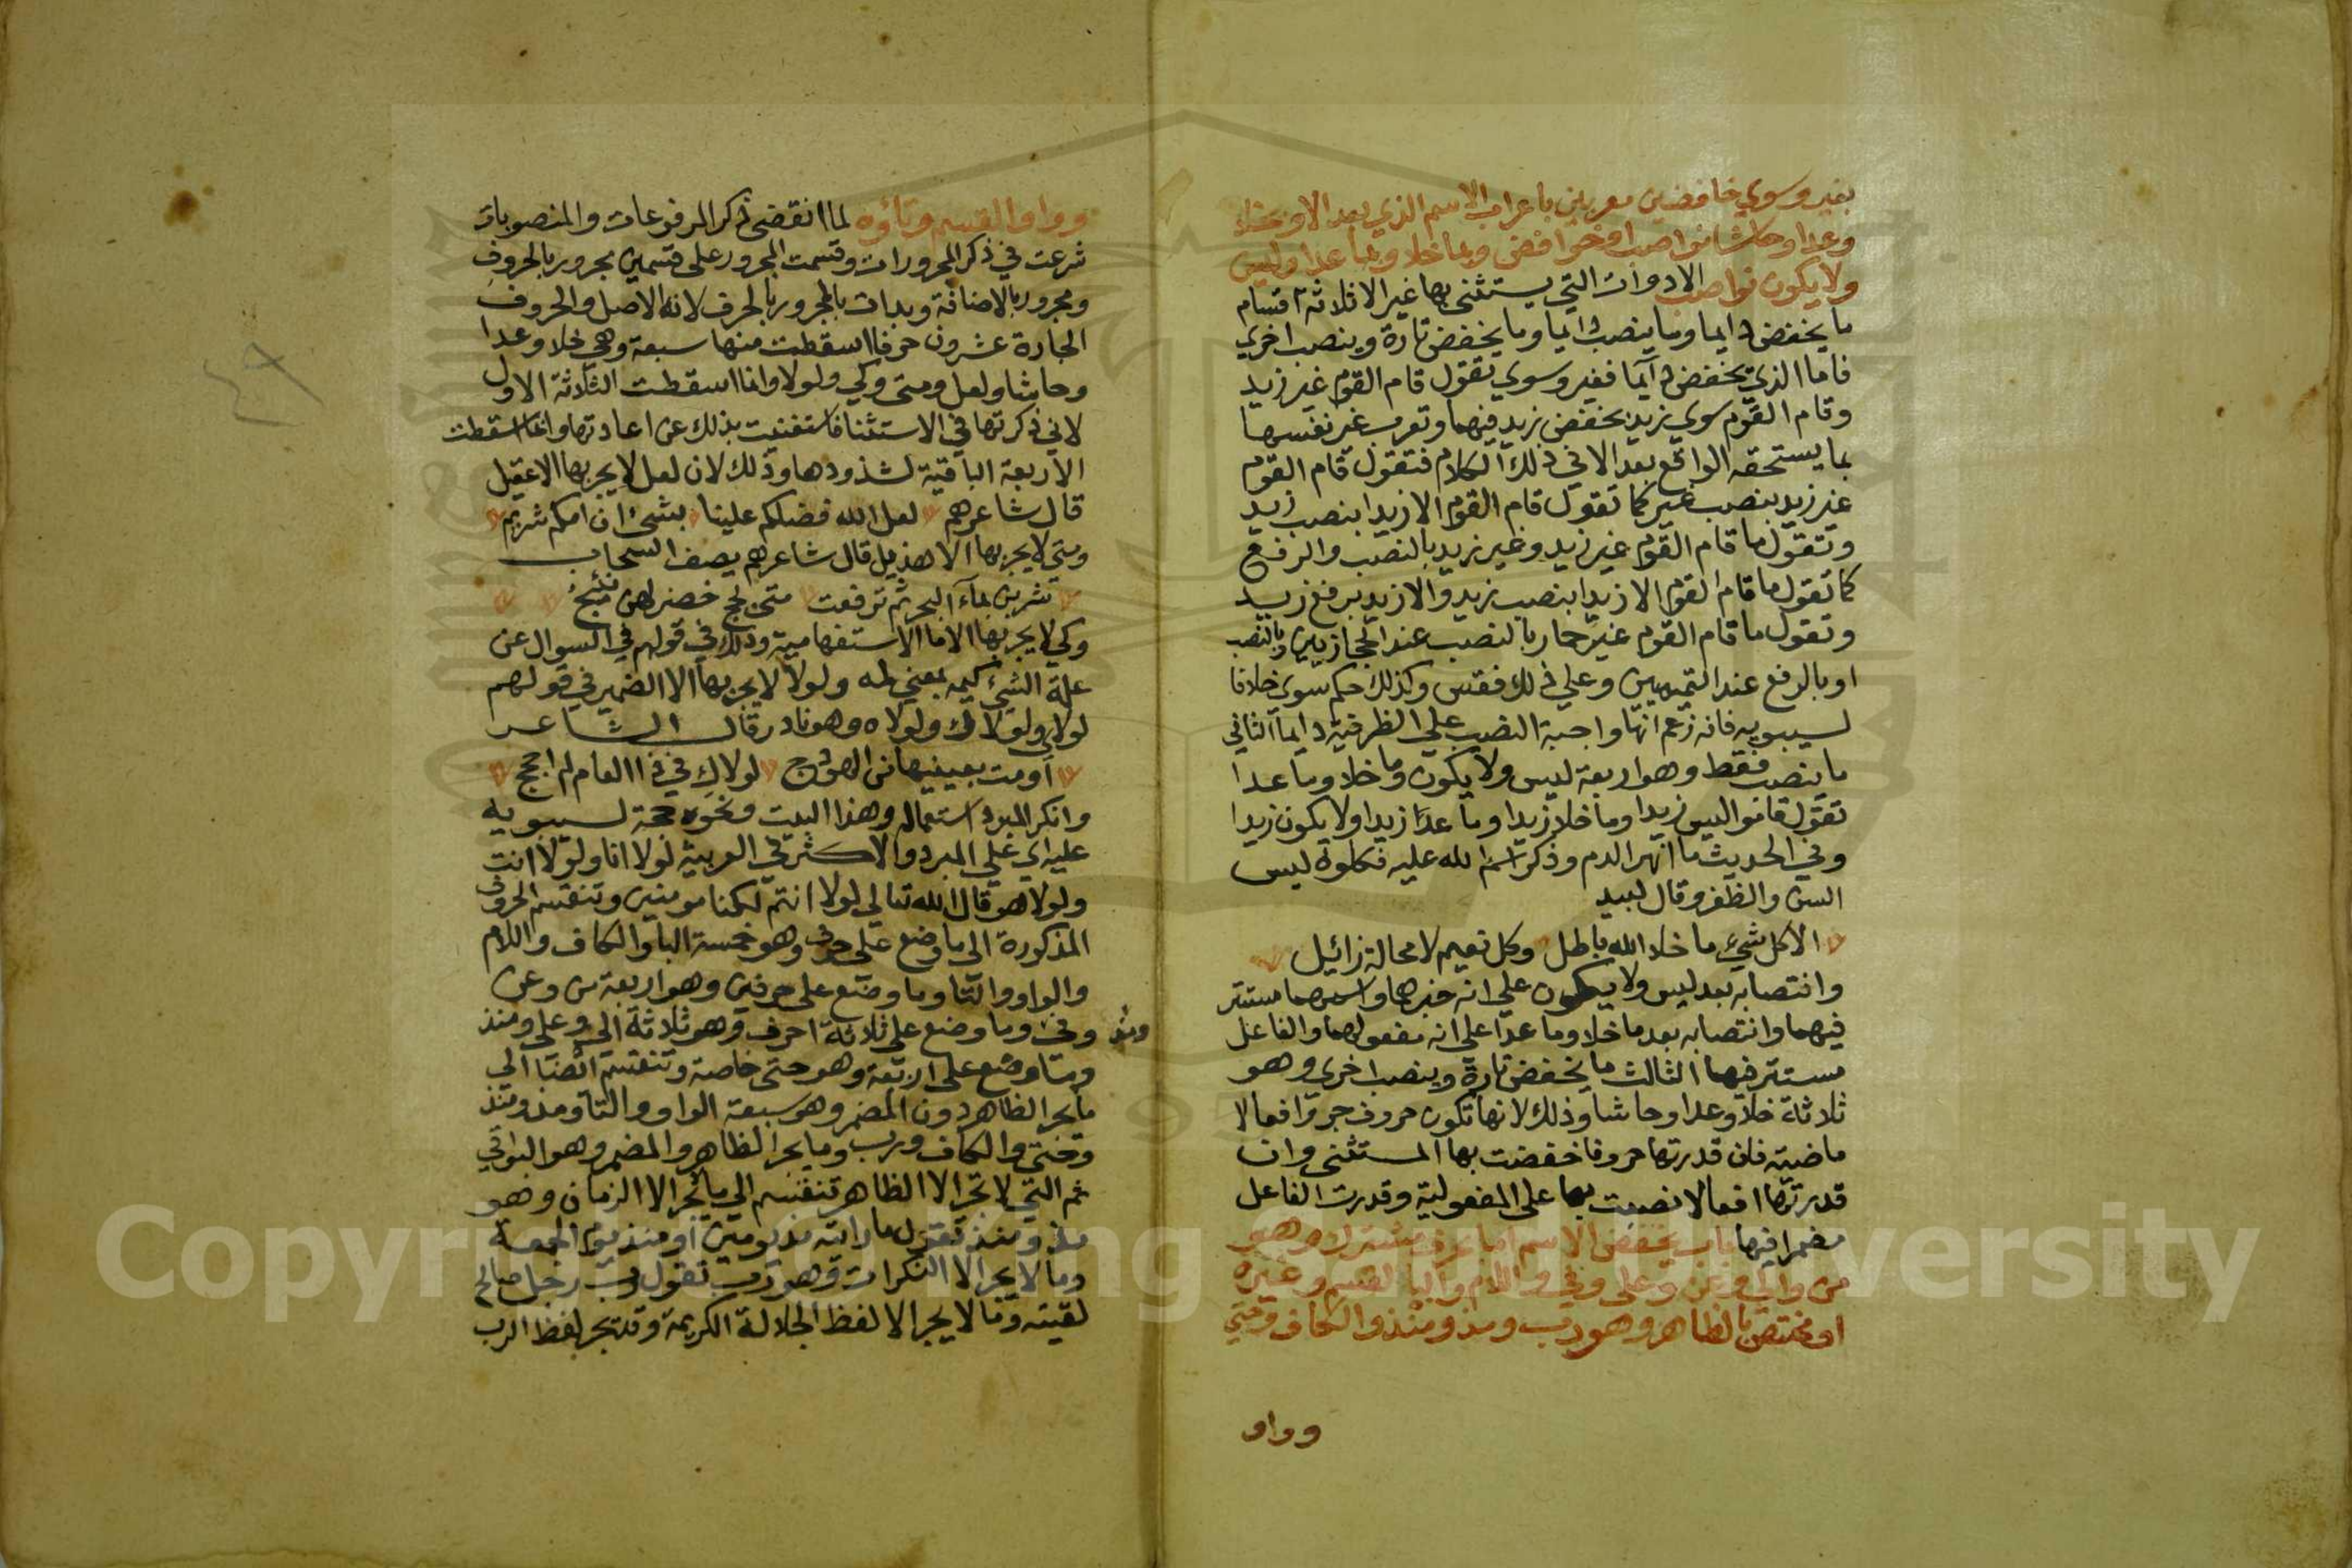 بغير وسوي خافضين معربين باعراب الاسم الذي بعد الا وبخلا
وعدا وحاشا نواصب او خوافض وبما خلا وبما عدا وليس
ولا يكون نواصب الادوات التي يستثنى بها غير الا ثلاثة اقسام
ما يخفض دايما وما ينصب دايما وما يخفض تارة وينصب اخري
فاما الذي يخفض دآيما فغير وسوي تقول قام القوم غير زيد
وقام القوم سوي زيد بخفض زيد فيهما وتعرب غير نفسها
بما يستحقه الواقع بعد الا في ذلك الكلام فتقول قام القوم
غير زيد بنصب غير كما تقول قام القوم الا زيدا بنصب زيد
وتقول ما قام القوم غير زيد وغير زيد بالنصب والرفع
كما تقول ما قام القوم الا زيدا بنصب زيد والا زيد برفع زيد
وتقول ما قام القوم غير حمار بالنصب عند الحجازيين وبالنصب
او بالرفع عند التميميين وعلي ذلك فقس وكذلك حكم سوي خلافا
لسيبويه فانه زعم انها واجبة النصب علي الظرفية دايما الثاني
ما ينصب فقط وهو اربعة ليس ولا يكون وما خلا وما عدا
تقول قاموا ليس زيدا وما خلا زيدا وما عدا زيدا ولا يكون زيدا
وفي الحديث ما انهر الدم وذكر اسم الله عليه فكلوه ليس
السن والظفر وقال لبيد
الا كل شيء ما خلا الله باطل وكل نعيم لا محالة زائيل
وانتصابه بعد ليس ولا يكون علي انه خبرهما واسمهما مستتر
فيهما وانتصابه بعد ما خلا وما عدا علي انه مفعولهما والفاعل
مستتر فيهما الثالث ما يخفض تارة وينصب اخري وهو
ثلاثة خلا وعدا وحاشا وذلك لانها تكون حروف جر وافعالا
ماضية فان قدرتها حروفا خفضت بها المستثنى وان
قدرتها افعالا نصبت بها على المفعولية وقدرت الفاعل
مضمرا فيها باب يخفض الاسم اما بحرف مشترك وهو
من والي وعن وعلى وفي واللام والبا للقسم وغيره
او مختص بالظاهر وهو رب ومذ ومنذ والكاف وحتي
وواو
وواو القسم وتاؤه لما انقضى ذكر المرفوعات والمنصوبات
شرعت في ذكر المجرورات وقسمت المجرور على قسمين مجرور بالحروف
ومجرور بالاضافة وبدات بالمجرور بالحرف لانه الاصل والحروف
الجارة عشرون حرفا اسقطت منها سبعة وهي خلا وعدا
وحاشا ولعل ومتى وكي ولولا وانما اسقطت الثلاثة الاول
لاني ذكرتها في الاستثنا فاستغنيت بذلك عن اعادتها وانما اسقطت
الاربعة الباقية لشذوذها وذلك لان لعل لا يجر بها الا عقيل
قال شاعرهم لعل الله فضلكم علينا بشئ ان امكم شريم
ومتي لا يجر بها الا هذيل قال شاعرهم يصف السحاب
شربن بمآء البحر ثم ترفعت متى لجج خضر لهن نئيج
وكي لا يجر بها الا ما الاستفهامية وذلك في قولهم في السوال عن
علة الشيء كيمه بمعني لمه ولولا لا يجر بها الا الضمير في قولهم
لولاي ولولاك ولولاه وهو نادر قال الشاعر
اومت بعينيها من الهودج لولاك في ذا العام لم احجج
وانكر المبرد استعماله وهذا البيت ونحوه حجة لسيبويه
عليه اي علي المبرد والاكثر في العربية لولا انا ولولا انت
ولولا هو قال الله تعالي لولا انتم لكنا مومنين وتنقسم الحروف
المذكورة الى ما وضع على حرف وهو خمسة البا والكاف واللام
والواو والتا وما وضع على حرفين وهو اربعة من وعن
وفي ومذ وما وضع على ثلاثة احرف وهو ثلاثة الي وعلي ومنذ
وما وضع على اربعة وهو حتى خاصة وتنقسم ايضا الى
ما يجر الظاهر دون المضمر وهو سبعة الواو والتا ومذ ومنذ
وحتى والكاف ورب وما يجر الظاهر والمضمر وهو البواقي
ثم التي لا تجر الا الظاهر تنقسم الي ما يجر الا الزمان وهو
مذ ومنذ تقول ما رايته مذ يومين او منذ يوم الجمعة
وما لا يجر الا النكرات وهو رب تقول رب رجل صالح
لقيته وما لا يجر الا لفظ الجلالة الكريمة وقد تجر لفظ الرب